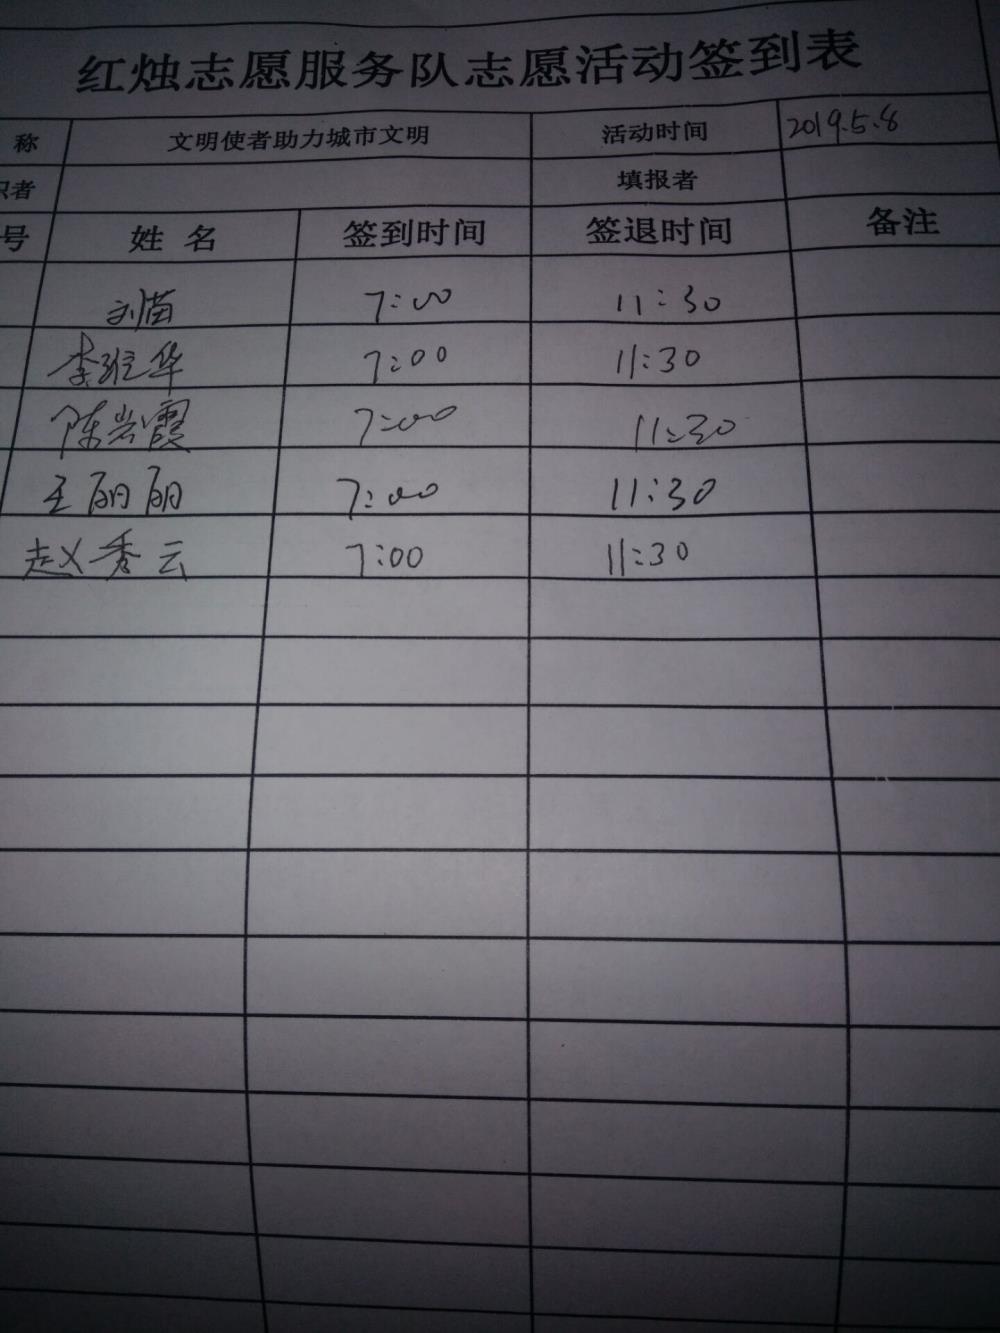 红烛志愿服务队志愿活动签到表
称 文明使者助力城市文明 活动时间 2019.5.8
织者 填报者
号 姓名 签到时间 签退时间 备注
刘苗 7:00 11:30
李维华 7:00 11:30
陈岩霞 7:00 11:30
王丽丽 7:00 11:30
赵秀云 7:00 11:30